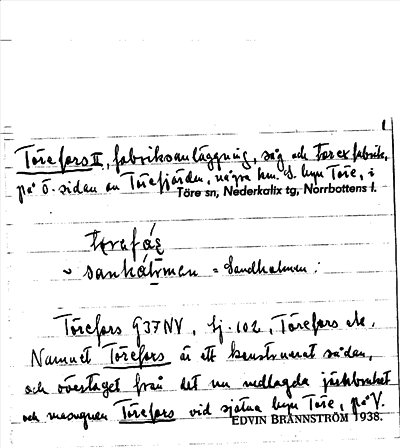 1
Törefors II, fabriksanläggning, såg och torexfabrik,
på Ö-sidan av Törefjärden, några hm. S. byn Töre, i
Töre sn, Nederkalix tg, Norrbottens l.
= Sandholmen.
Törefors G37NV, Lj. 102, Törefors
Namnet Törefors är ett konstruerat sådan,
och övertaget från det nu nedlagda järnbruket
och masugnen Törefors vid sjelva byn Töre, på V.
EDVIN BRÄNNSTRÖM 1938.